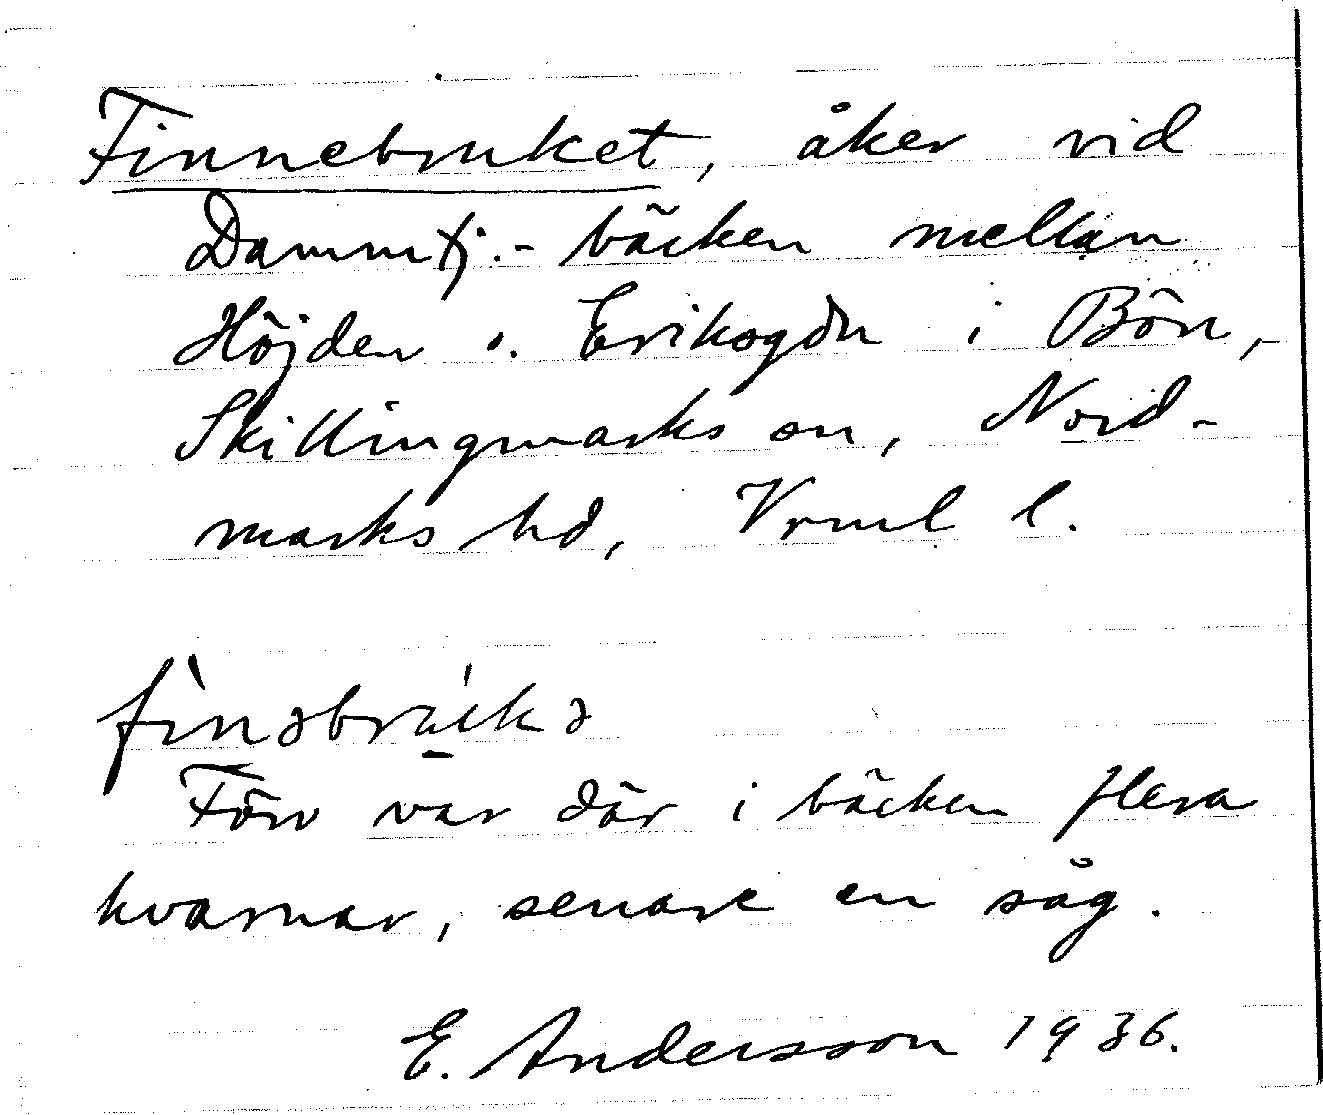 Finnebruket, åker vid
Dammtj.-bäcken mellan
Höjden o. Eriksgdn i Bön,
Skillingmarks sn, Nord-
marks hd, Vrml l.
finəbrúkə
Förr var där i bäcken flera
kvarnar, senare en såg.
E. Andersson 1936.